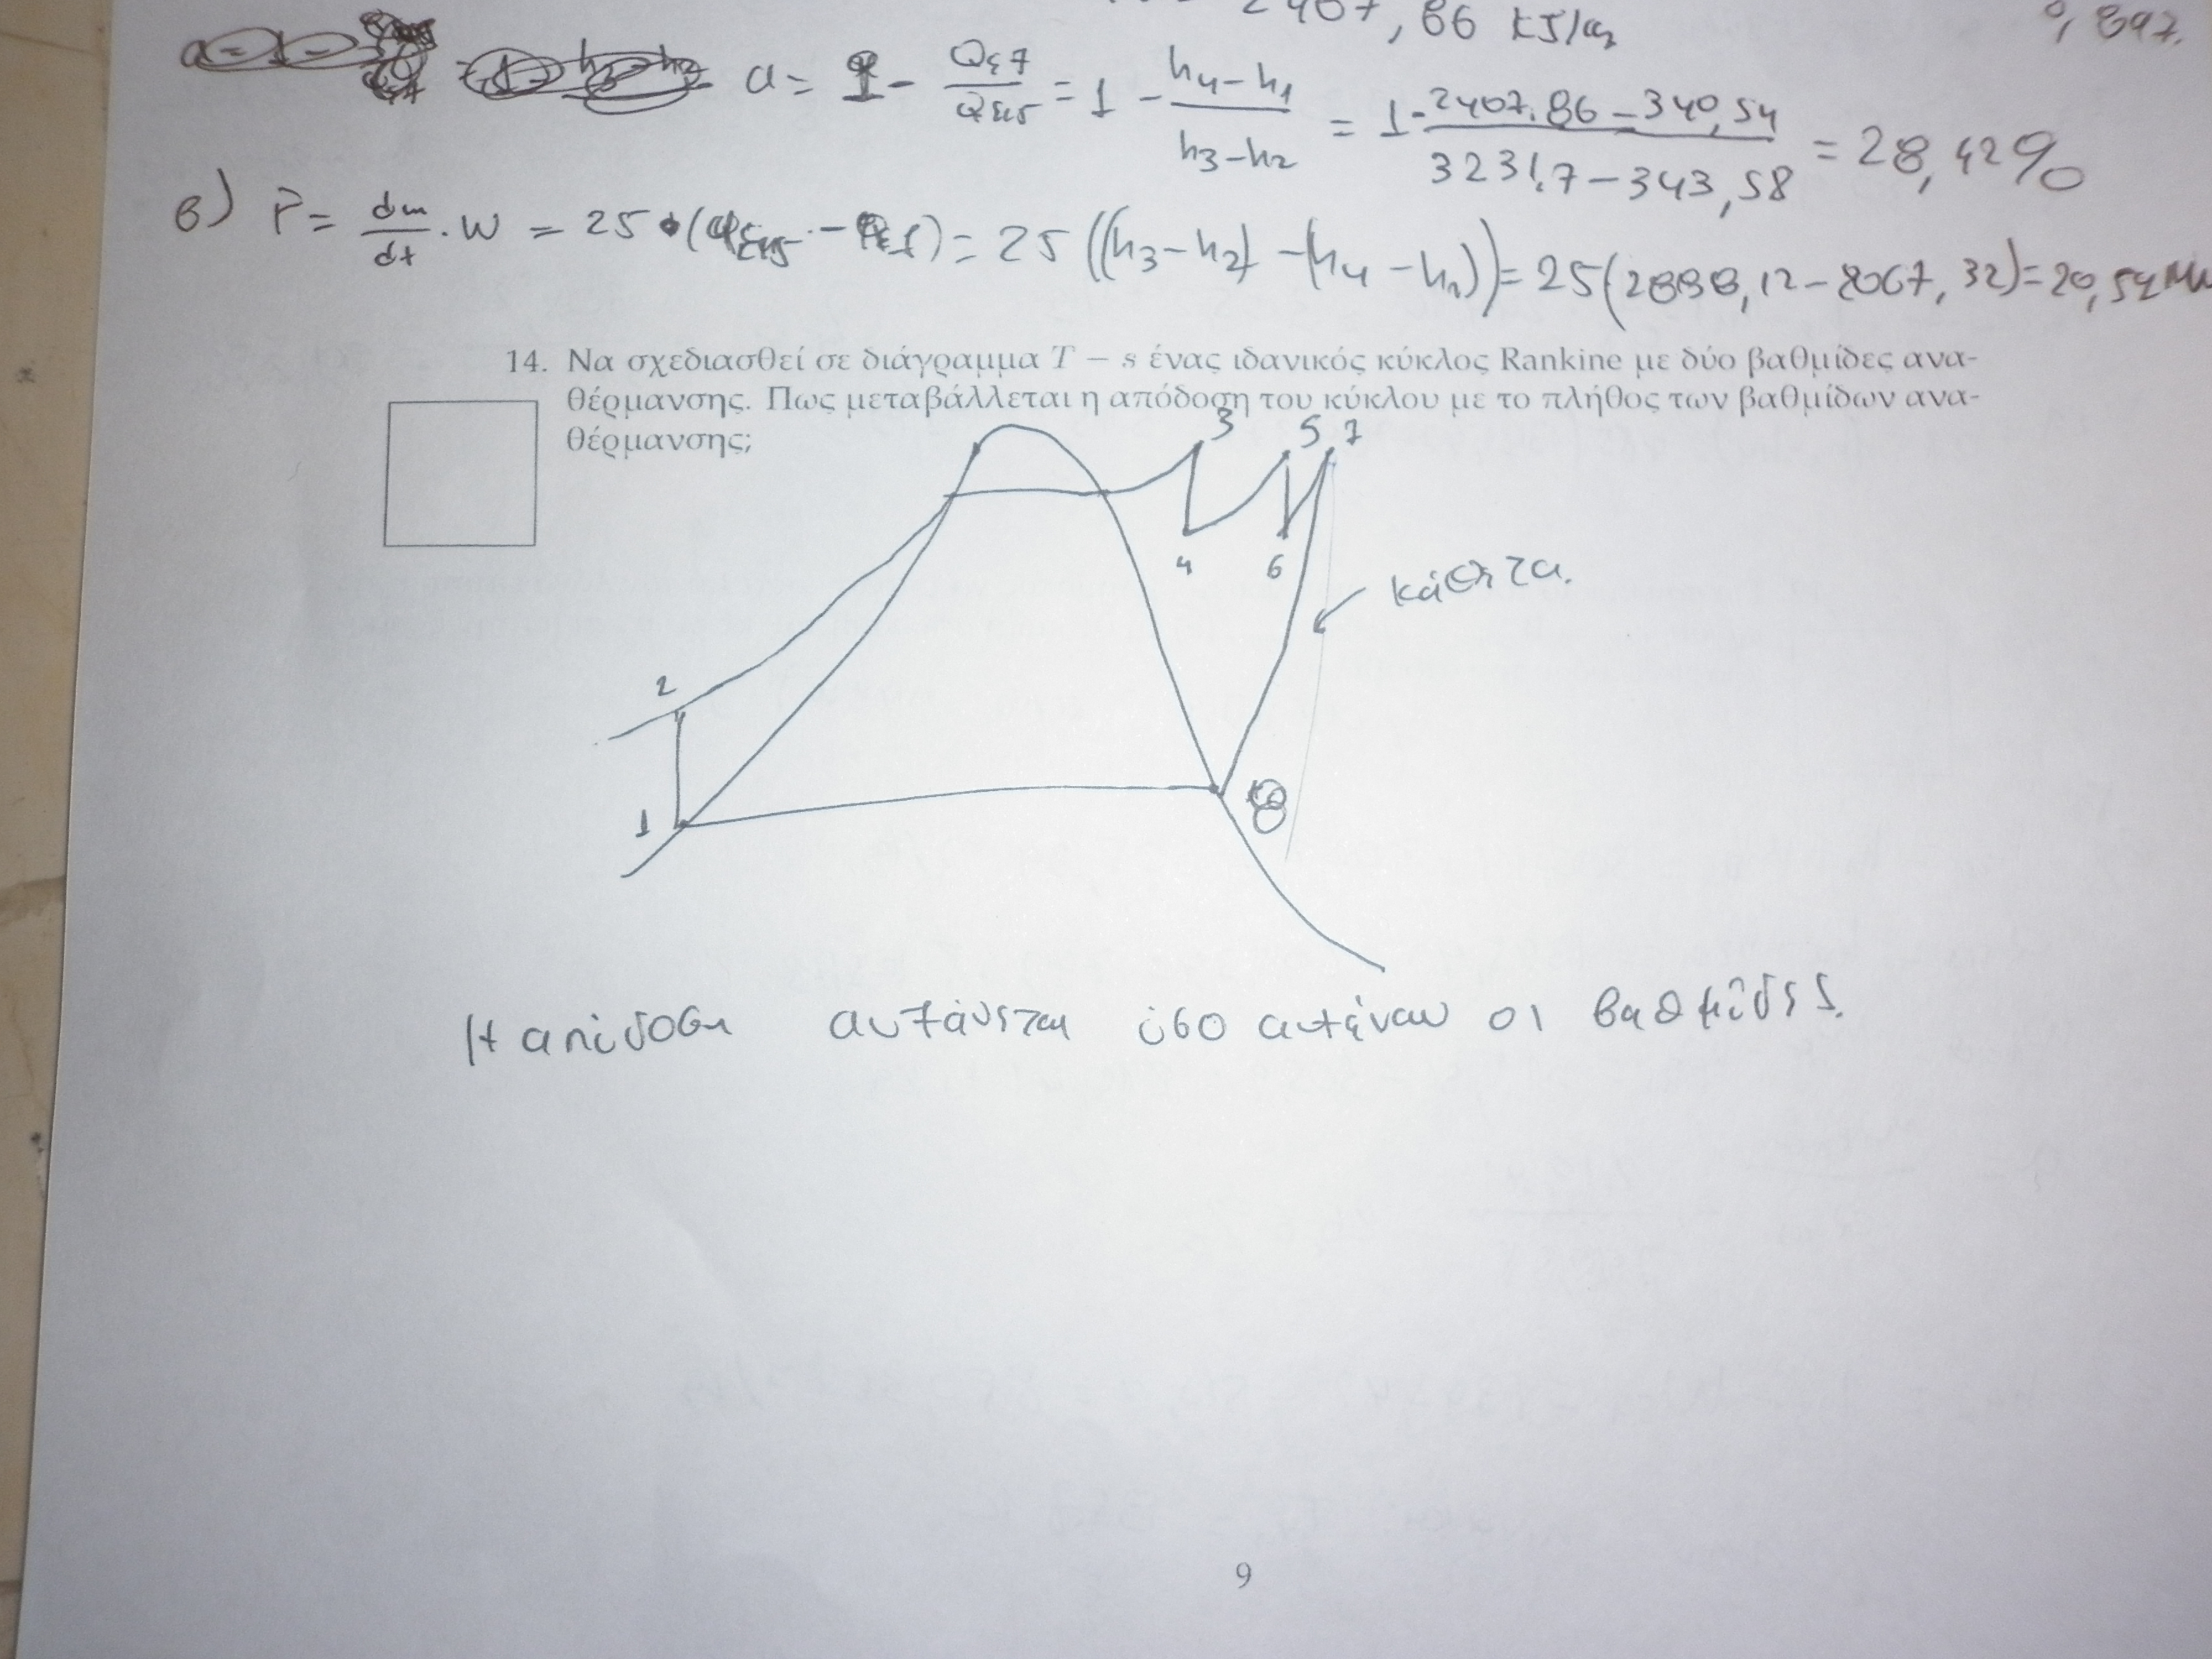 2407,86 kJ/kg
0,897.
a = 1 - Qεξ/Qεισ = 1 - h4-h1/h3-h2 = 1 - 2407.86-340,54/3231,7-343,58 = 28,42%
β) P = dm/dt · W = 25 · (qεισ - qεξ) = 25 ((h3-h2) - (h4-h1)) = 25(2888,12-2067,32) = 20,52MW
14. Να σχεδιασθεί σε διάγραμμα T – s ένας ιδανικός κύκλος Rankine με δύο βαθμίδες ανα-
θέρμανσης. Πως μεταβάλλεται η απόδοση του κύκλου με το πλήθος των βαθμίδων ανα-
θέρμανσης;
3
5
7
4
6
κάθετα.
2
1
8
Η απόδοση αυξάνεται όσο αυξάνουν οι βαθμίδες.
9